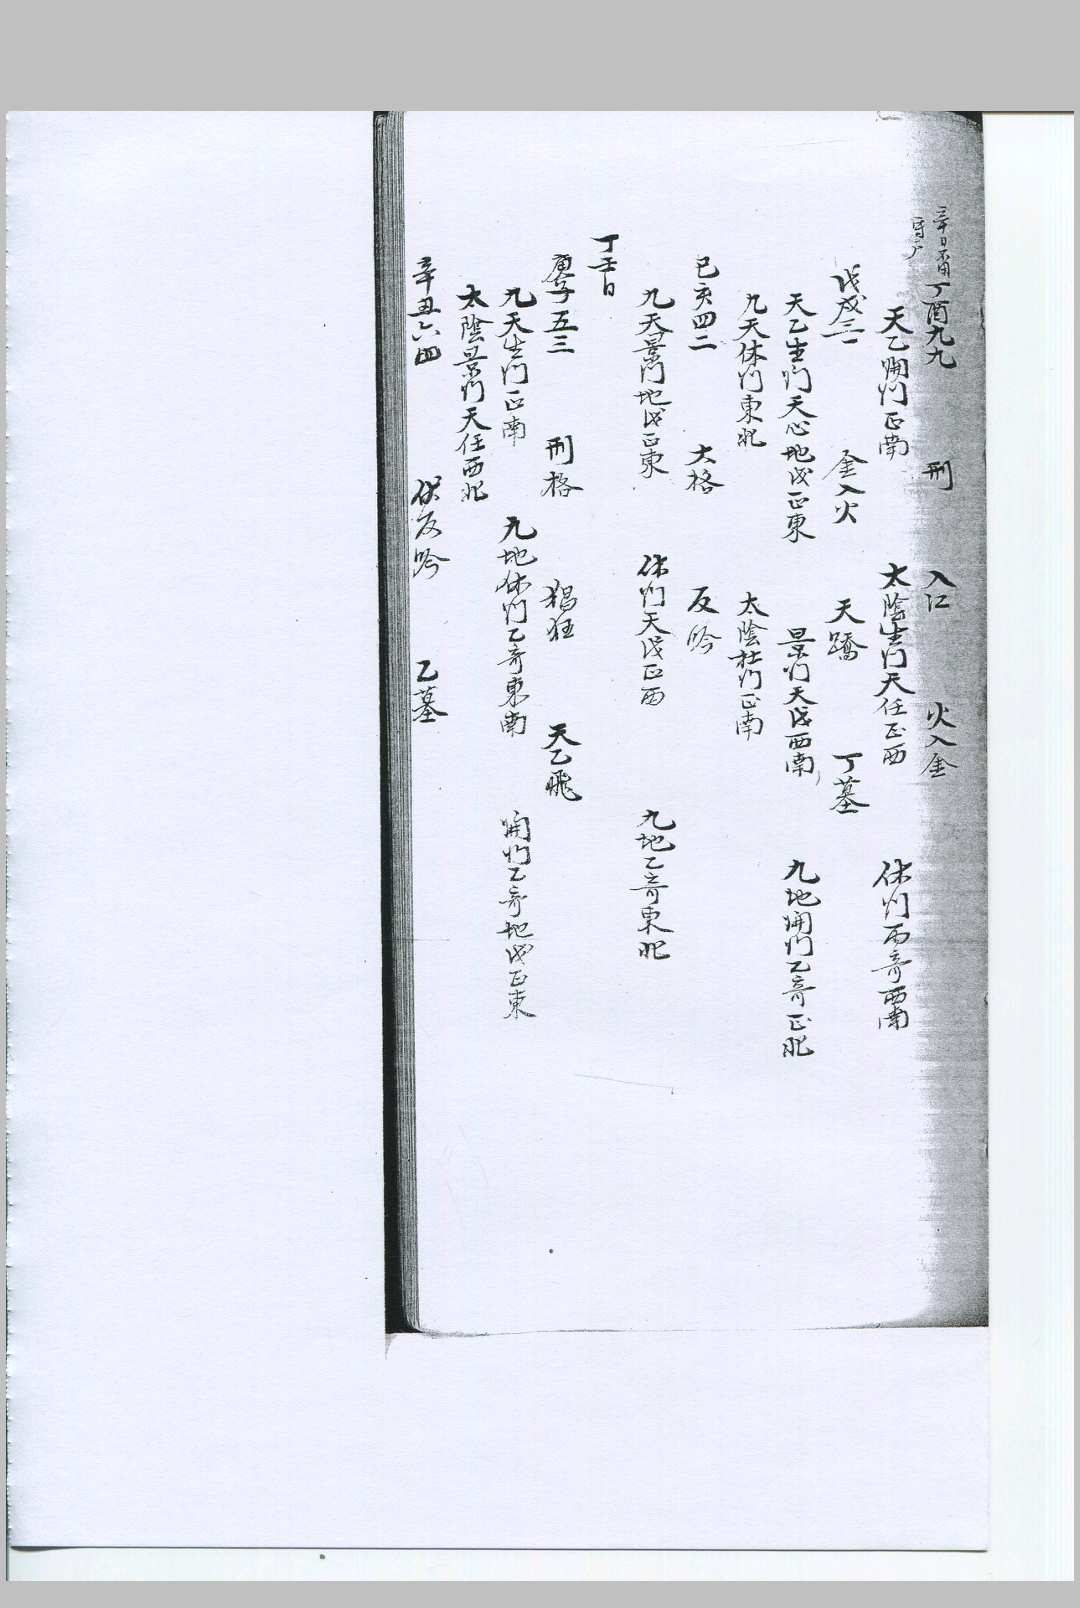 辛日不用
丁酉九九 刑 入江 火入金
天乙開門正南 太陰生門天任正西 休門丙奇西南
戊戌三一 金入火 天蹻 丁墓
天乙生門天心地戊正東 景門天戊西南 九地開門乙奇正北
九天休門東北 太陰杜門正南
己亥四二 大格 反吟
九天景門地戊正東 休門天戊正西 九地乙奇東北
丁壬日
庚子五三 刑格 猖狂 天乙飛
九天生門正南 九地休門乙奇東南 開門乙奇地戊正東
太陰景門天任西北
辛丑六四 伏反吟 乙墓